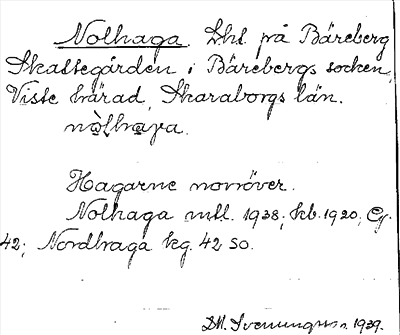 Nolhaga Lht. på Bäreberg
Skattegården i Bärebergs socken,
Viste härad, Skaraborgs län.
Hagarne norröver.
Nolhaga mtl. 1938; kb. 1920; Eg.
42; Nordhaga kg. 42 SO.
D.M. Svenungsson. 1939.